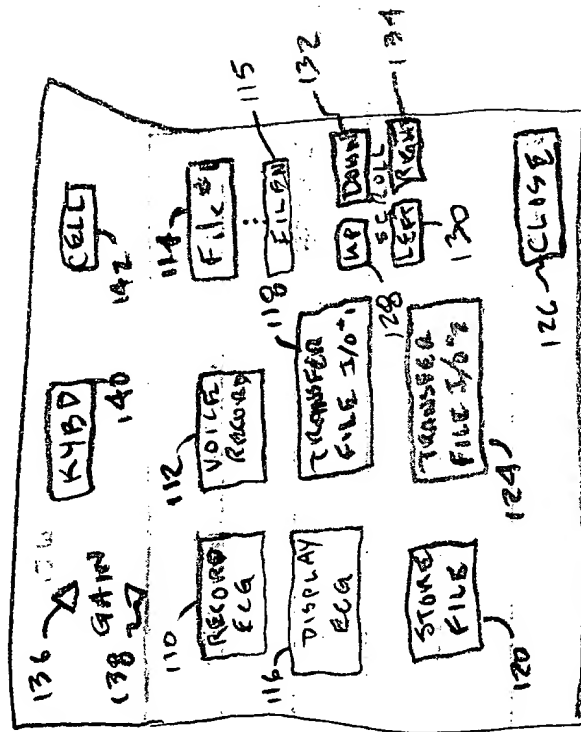 136
138 GAIN
KYBD
140
CELL
142
110
RECORD
ECG
112
VOICE
RECORD
114
File #
115
FILE N
116
DISPLAY
ECG
118
TRANSFER
FILE I/O #1
128
UP
DOWN
132
SCROLL
LEFT
RIGHT
130
134
120
STORE
FILE
124
TRANSFER
FILE I/O #2
126
CLOSE